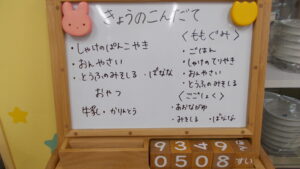 きょうのこんだて
・しゃけのぱんこやき
・おんやさい
・とうふのみそしる ・ばなな
おやつ
牛乳・かりんとう
〈ももぐみ〉
・ごはん
・しゃけのてりやき
・おんやさい
・とうふのみそしる
〈こごしょく〉
・あおながゆ
・みそしる ・ばなな
9 3 4 9
0 5 0 8 すい